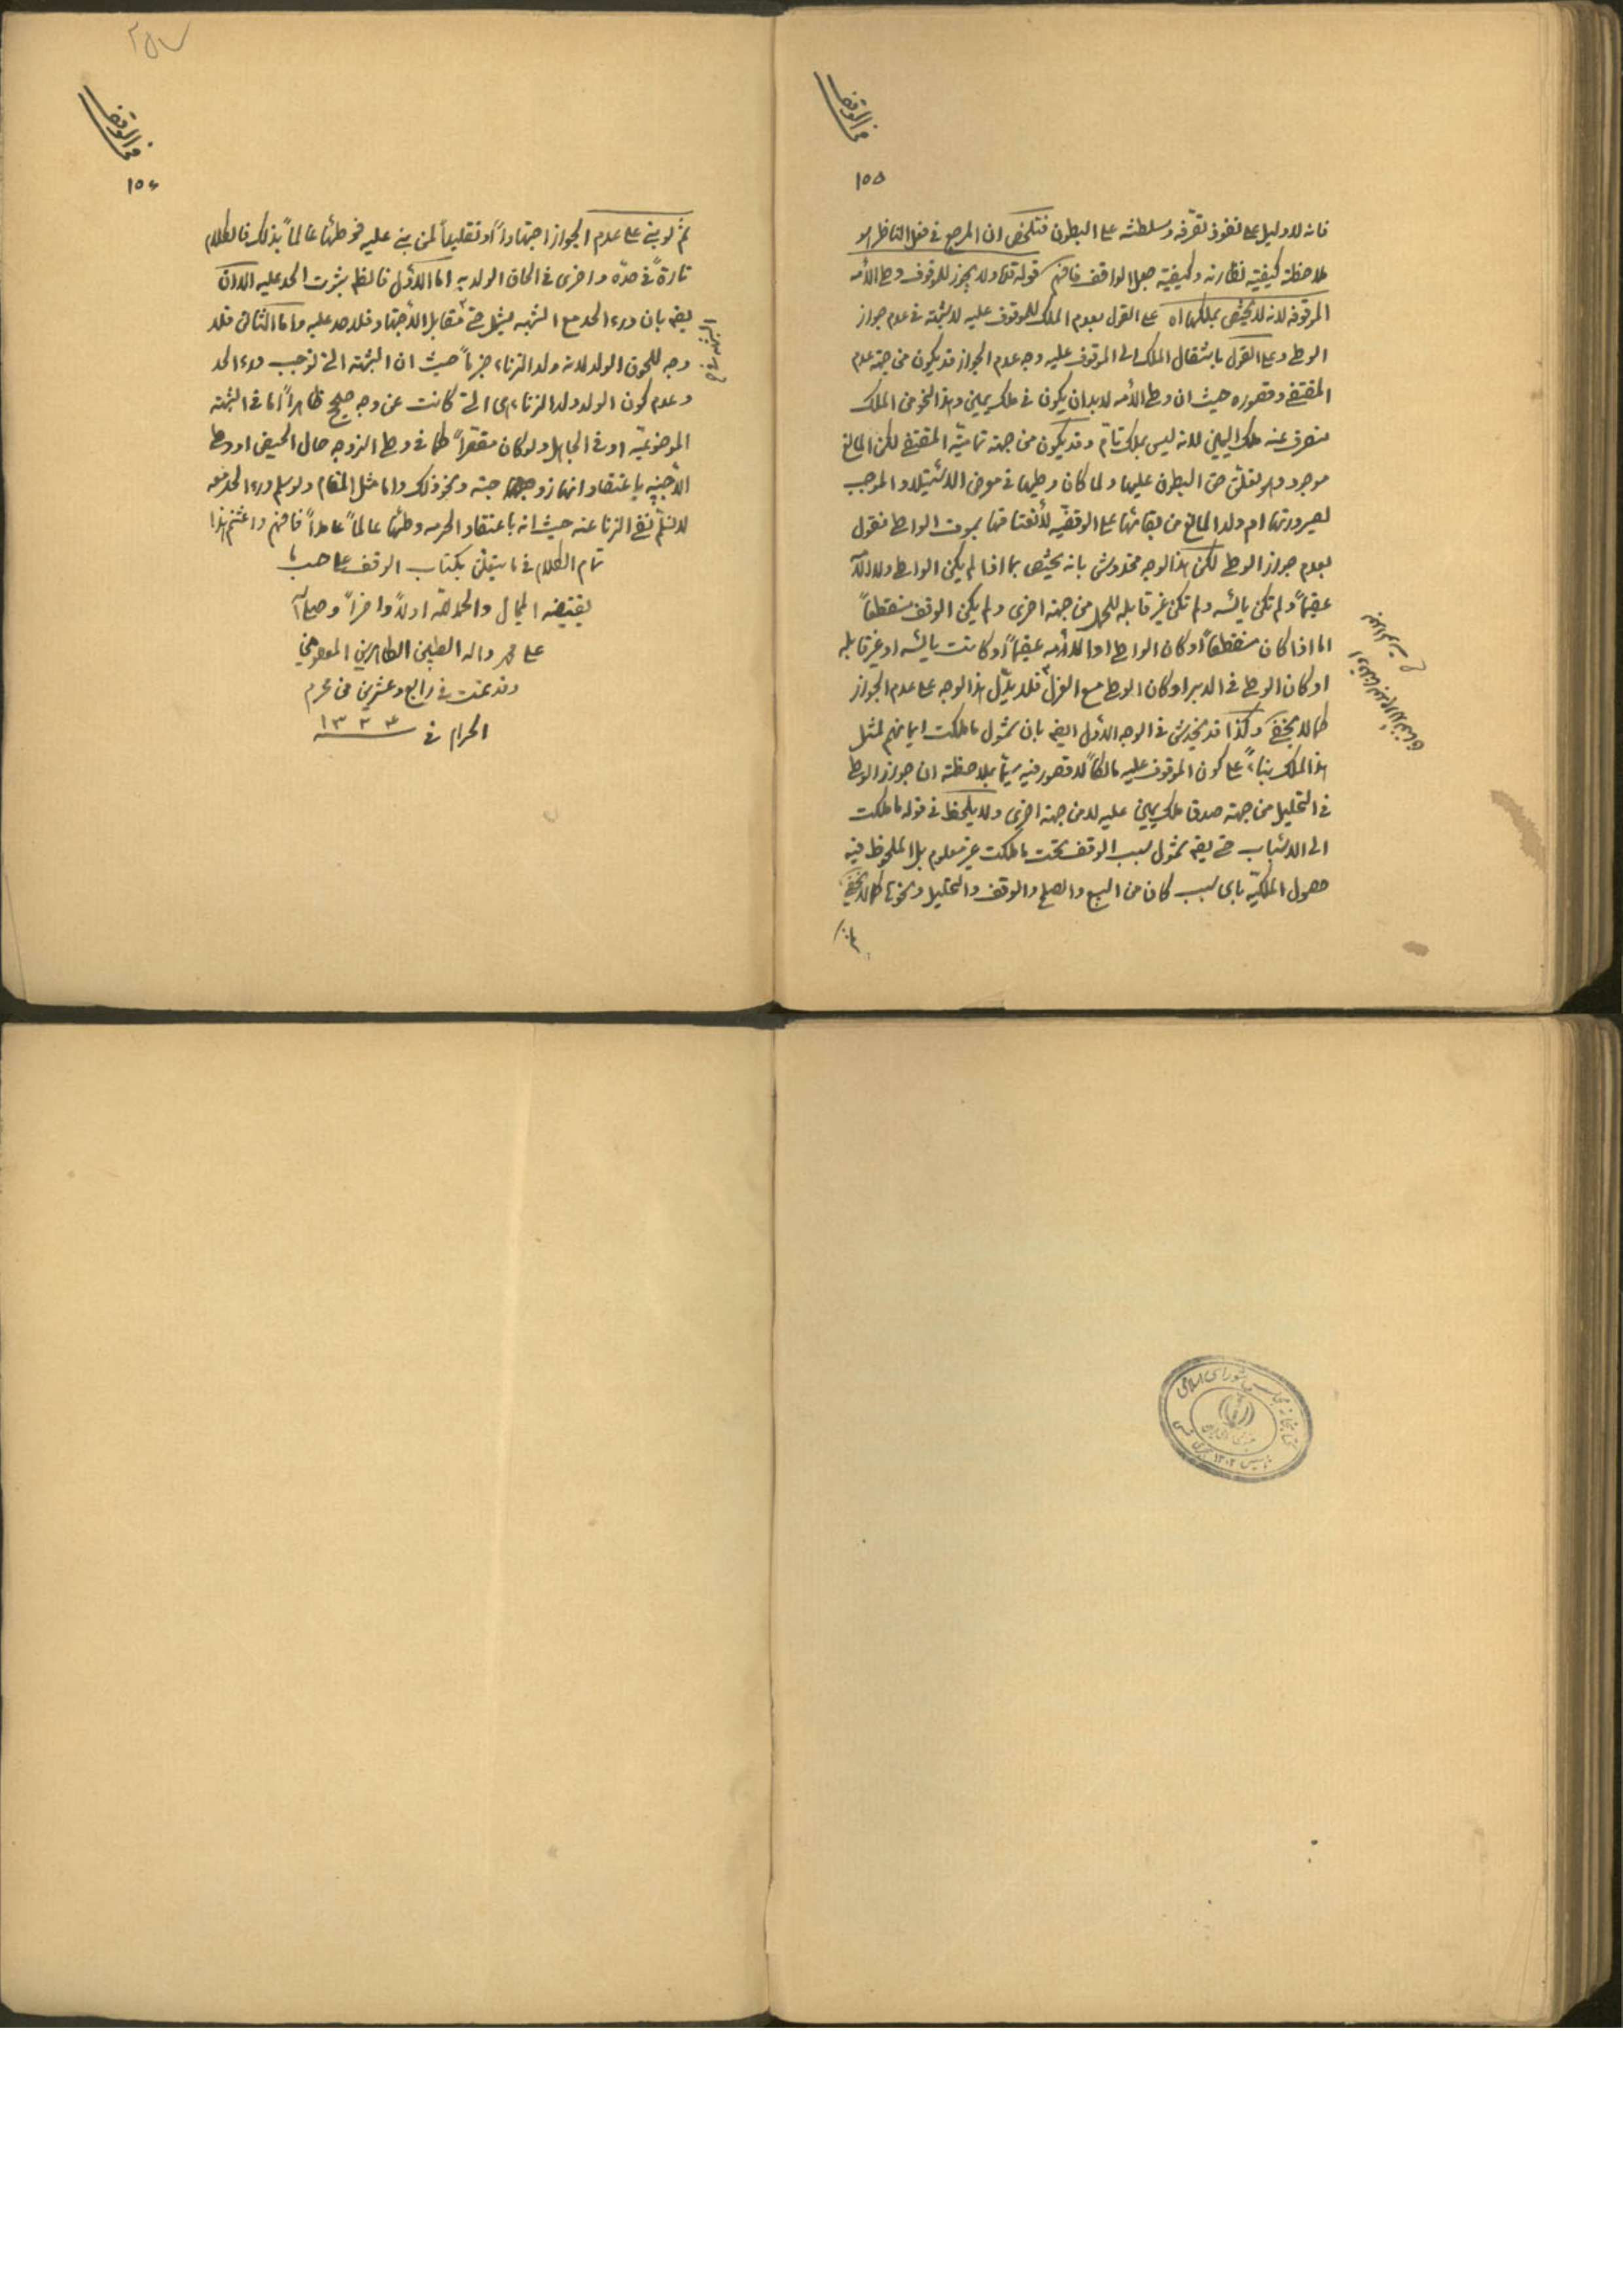 من الوقف
١٥٥
فانه لا دليل على نفوذ تصرّفه وسلطنته على البطون فتلخّص ان المرجع فى فعل الناظر هو
ملاحظة كيفيّة نظارته وكيفيّة جعل الواقف فافهم قوله ولا يجوز للموقوف وطى الأمه
الموقوفه لانه لا يختصّ بملكها اه على القول بعدم الملك للموقوف عليه لا شبهة فى عدم جواز
الوطى وعلى القول بانتقال الملك الى الموقوف عليه وجه عدم الجواز قد يكون من جهة عدم
المقتضى وقصوره حيث ان وطى الأمه لا بد ان يكون فى ملك يمين وهذا النحو من الملك
منصرف عنه ملك اليمين لانه ليس بملك تامّ وقد يكون من جهة تماميّة المقتضى لكن المانع
موجود وهو تعلّق حق البطون عليها ولما كان وطيها فى معرض الاستيلاد الموجب
لصيرورتها ام ولد المانع من بقائها على الوقفيّه لأنعتاقها بموت الواطى فنقول
بعدم جواز الوطى لكن هذا الوجه مخدوش بانه يختص بما اذا لم يكن الواطى
عقيماً ولم تكن يائسه ولم تكن غير قابله للحمل من جهة اخرى ولم يكن الوقف منقطعاً
اما اذا كان منقطعاً او كان الواطى او الأمه عقيماً او كانت يائسه او غير قابله
او كان الوطى فى الدبر او كان الوطى مع العزل فلا يدّل هذا الوجه على عدم الجواز
كما لا يخفى وكذا قد يخدش فى الوجه الاول ايضا بان شمول ما ملكت ايمانهم لمثل
هذا الملك بناءً على كون الموقوف عليه مالكاً لا قصور فيه سيّما بملاحظة ان جواز الوطى
فى التحليل من جهة صدق ملك يمين عليه لا من جهة اخرى ولا يلحظ فى قوله ما ملكت
الى الاسباب حتى يقال شمول سبب الوقف تحت ما ملكت غير معلوم بل الملحوظ فيه
حصول الملكيّة باى سبب كان من البيع والصلح والوقف والتحليل ونحوها كما لا يخفى
ثم
٢٥٧
من الوقف
١٥٦
ثمّ لو بنى على عدم الجواز اجتهاداً او تقليداً لمن بنى عليه فوطئها عالماً بذلك فالكلام
تارةً فى حدّه واخرى فى الحاق الولد به اما الاوّل فالظاهر ثبوت الحد عليه الا ان
يقال بان درء الحد مع الشبهه يشمل حتى مقابل الأجتهاد فلا حد عليه واما الثانى فلا
وجه للحوق الولد لانه ولد الزناء جزماً حيث ان الشبهة التى توجب درء الحد
وعدم كون الولد ولد الزناء هى التى كانت عن وجه صحيح ظاهراً اما فى الشبهة
الموضوعيّه او فى الجاهل ولو كان مقصّراً كما فى وطى الزوجه حال الحيض او وطى
الأجنبيه باعتقاد انها زوجته ونحو ذلك واما مثل المقام ولو سلم درء الحد فيه
لا نسلّم نفى الزنا عنه حيث انه باعتقاد الحرمه وطئها عالماً عامداً فافهم واغتنم هذا
تمام الكلام فى ما يتعلّق بكتاب الوقف على حسب ما
يقتضيه المجال والحمد لله اولاً واخراً وصلى الله
على محمد واله الطيبين الطاهرين المعصومين
وقد تمت فى رابع وعشرين من محرم
الحرام فى ١٣٢٤